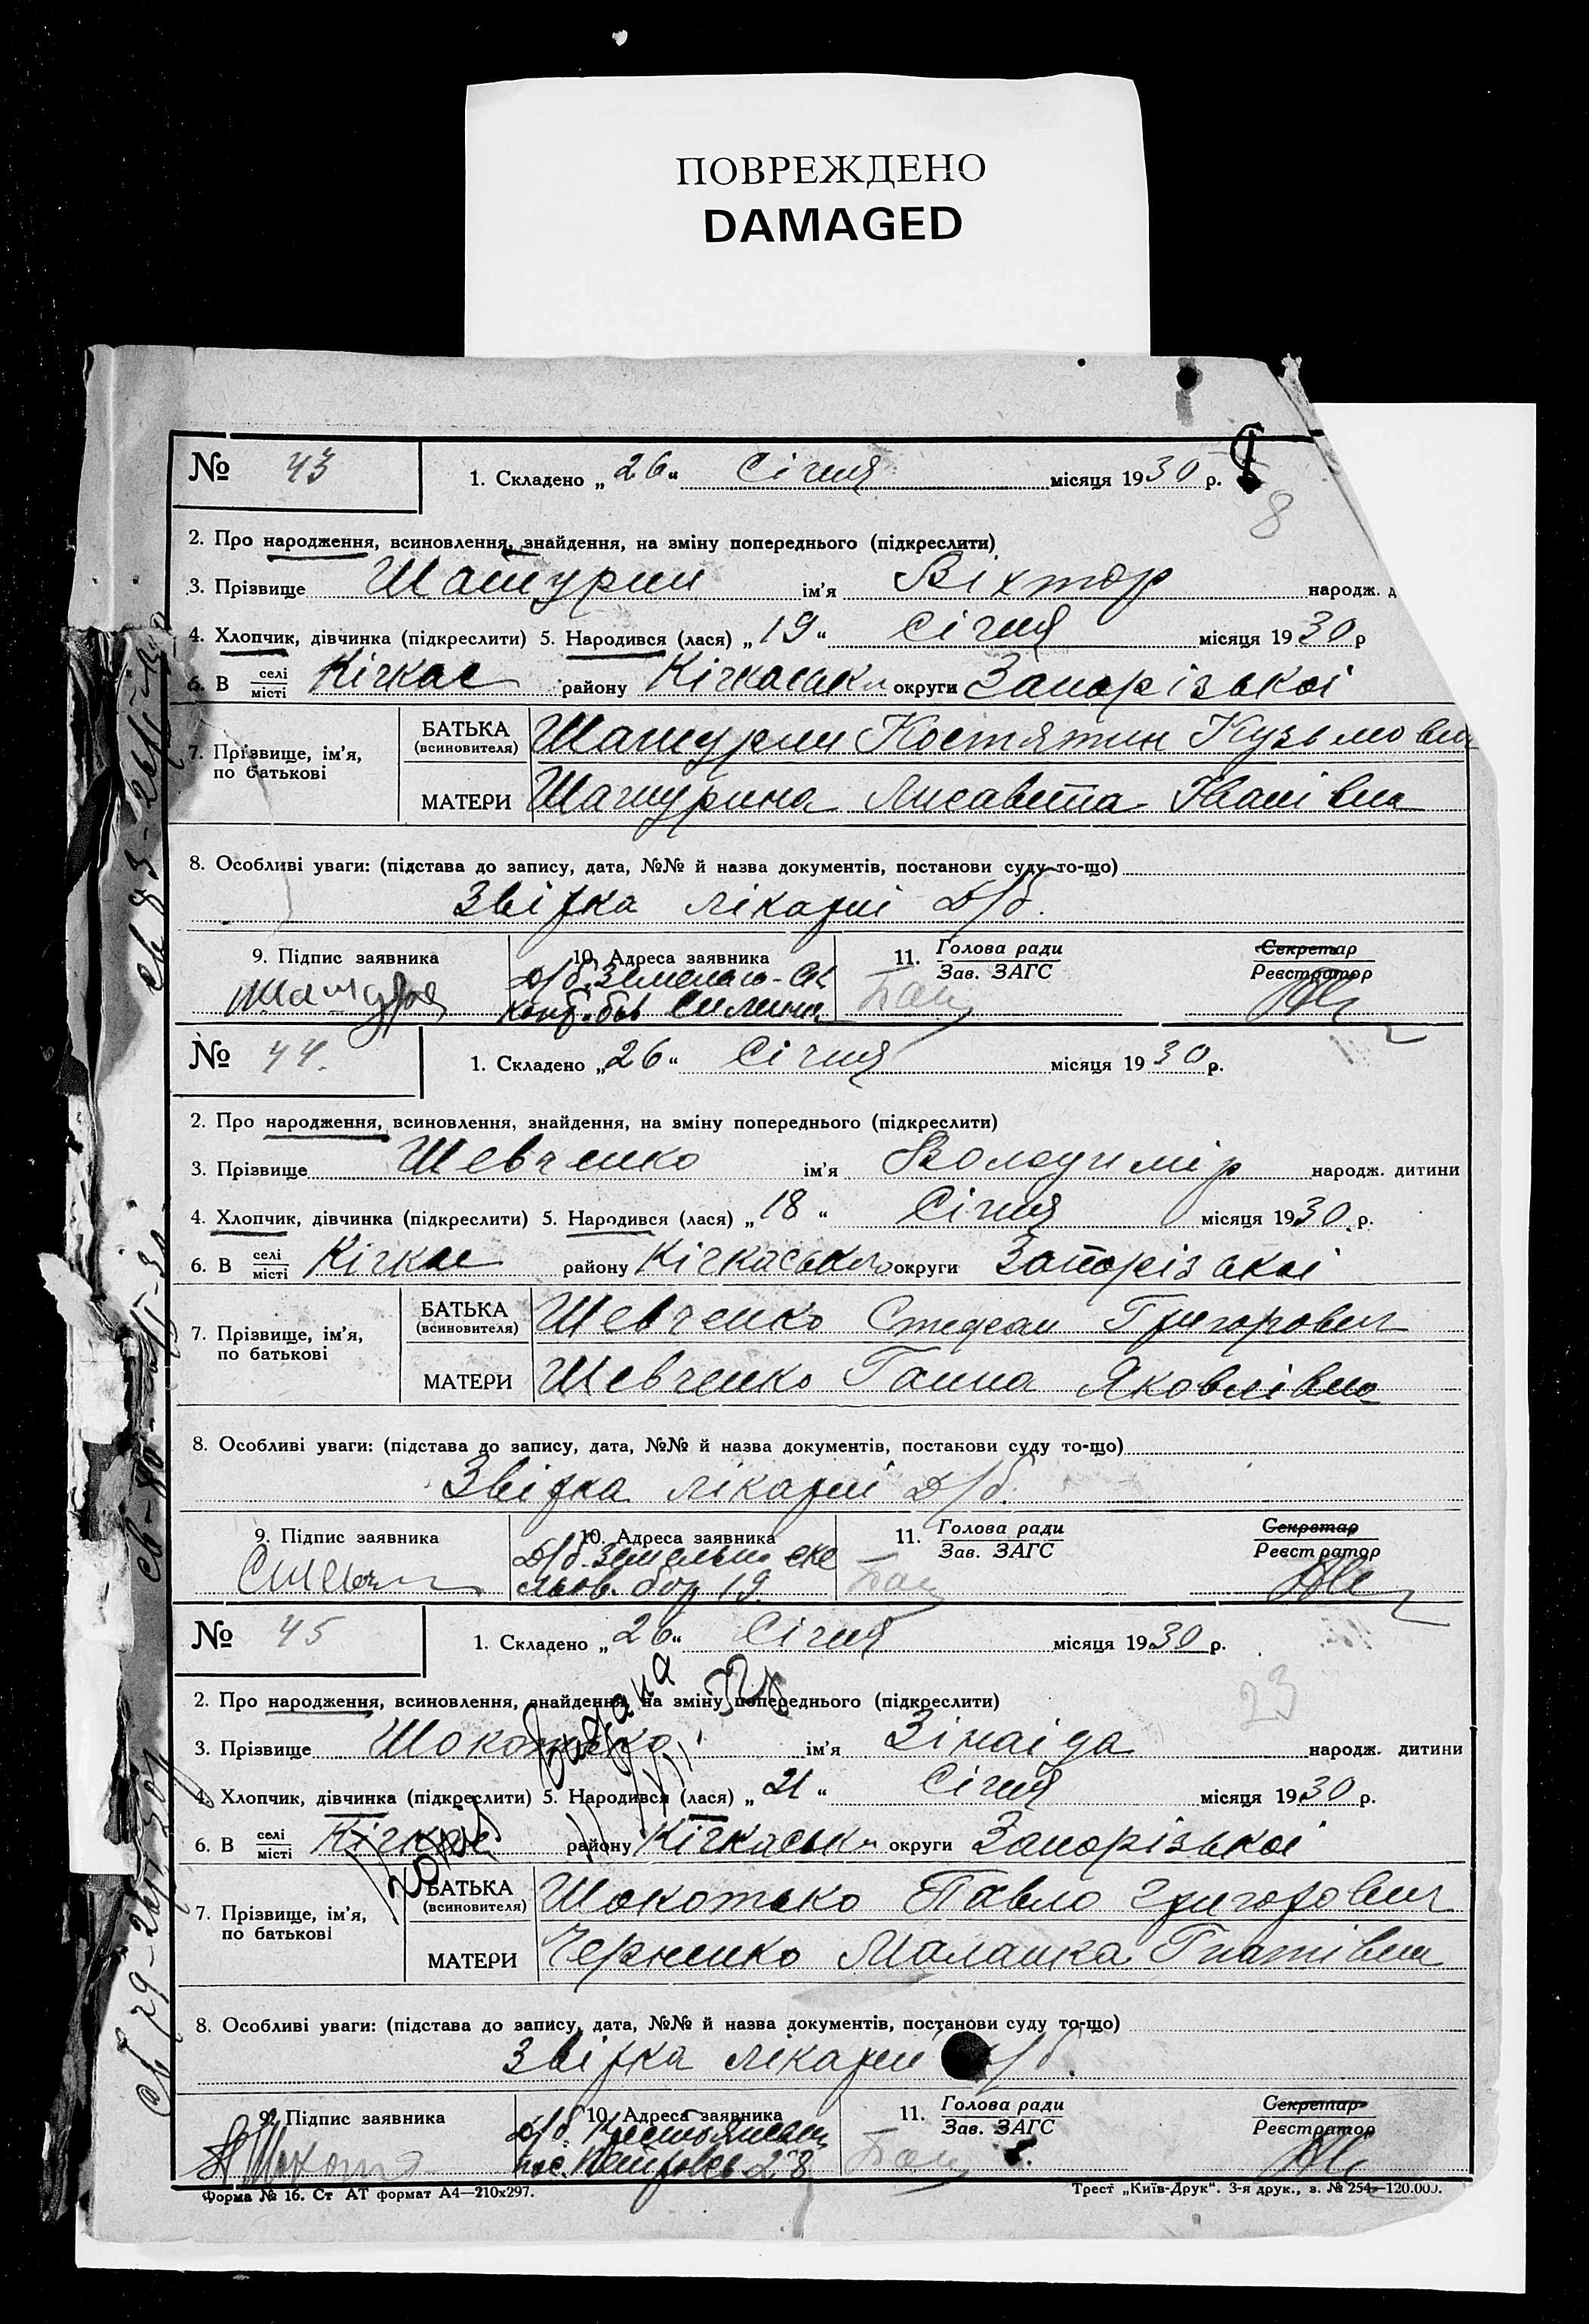 ПОВРЕЖДЕНО
DAMAGED
№ 43
1. Складено „26“ Січня місяця 1930 р.
8
2. Про народження, всиновлення, знайдення, на зміну попереднього (підкреслити)
3. Прізвище Шатурин ім'я Віктор народж. д
4. Хлопчик, дівчинка (підкреслити) 5. Народився (лася) „19“ Січня місяця 1930 р
6. В селі місті Кічкас району Кічкаськ округи Запорізької
7. Прізвище, ім'я, по батькові
БАТЬКА (всиновителя) Шатурин Костятин Кузьмович
МАТЕРИ Шатурина Лисавета Іванівна
8. Особливі уваги: (підстава до запису, дата, №№ й назва документів, постанови суду то-що)
Звідка лікарні Д/б.
9. Підпис заявника
10. Адреса заявника
Д/б.
11. Голова ради
Зав. ЗАГС
Секретар
Реєстратор
№ 44.
1. Складено „26“ Січня місяця 1930 р.
2. Про народження, всиновлення, знайдення, на зміну попереднього (підкреслити)
3. Прізвище Шевченко ім'я Володимір народж. дитини
4. Хлопчик, дівчинка (підкреслити) 5. Народився (лася) „18“ Січня місяця 1930 р.
6. В селі місті Кічкас району Кічкаського округи Запорізькоі
7. Прізвище, ім'я, по батькові
БАТЬКА (всиновителя) Шевченко Стефан Григорович
МАТЕРИ Шевченко Ганна Яковлівна
8. Особливі уваги: (підстава до запису, дата, №№ й назва документів, постанови суду то-що)
Звідка лікарні Д/б.
9. Підпис заявника
10. Адреса заявника
Д/б.
19.
11. Голова ради
Зав. ЗАГС
Секретар
Реєстратор
№ 45
1. Складено „26“ Січня місяця 1930 р.
2. Про народження, всиновлення, знайдення, на зміну попереднього (підкреслити)
23
3. Прізвище Шокотько ім'я Зінаіда народж. дитини
4. Хлопчик, дівчинка (підкреслити) 5. Народився (лася) „21“ Січня місяця 1930 р.
6. В селі місті Кічкас району Кічкаськ округи Запорізькоі
7. Прізвище, ім'я, по батькові
БАТЬКА (всиновителя) Шокотько Павло Григорович
МАТЕРИ Черненко Маланка Гнатівна
8. Особливі уваги: (підстава до запису, дата, №№ й назва документів, постанови суду то-що)
Звідка лікарні /б.
9. Підпис заявника
10. Адреса заявника
Д/б.
28
11. Голова ради
Зав. ЗАГС
Секретар
Реєстратор
Форма № 16. Ст АТ формат А4—210х297.
Трест „Київ-Друк“. 3-я друк., з. № 254—120.000.